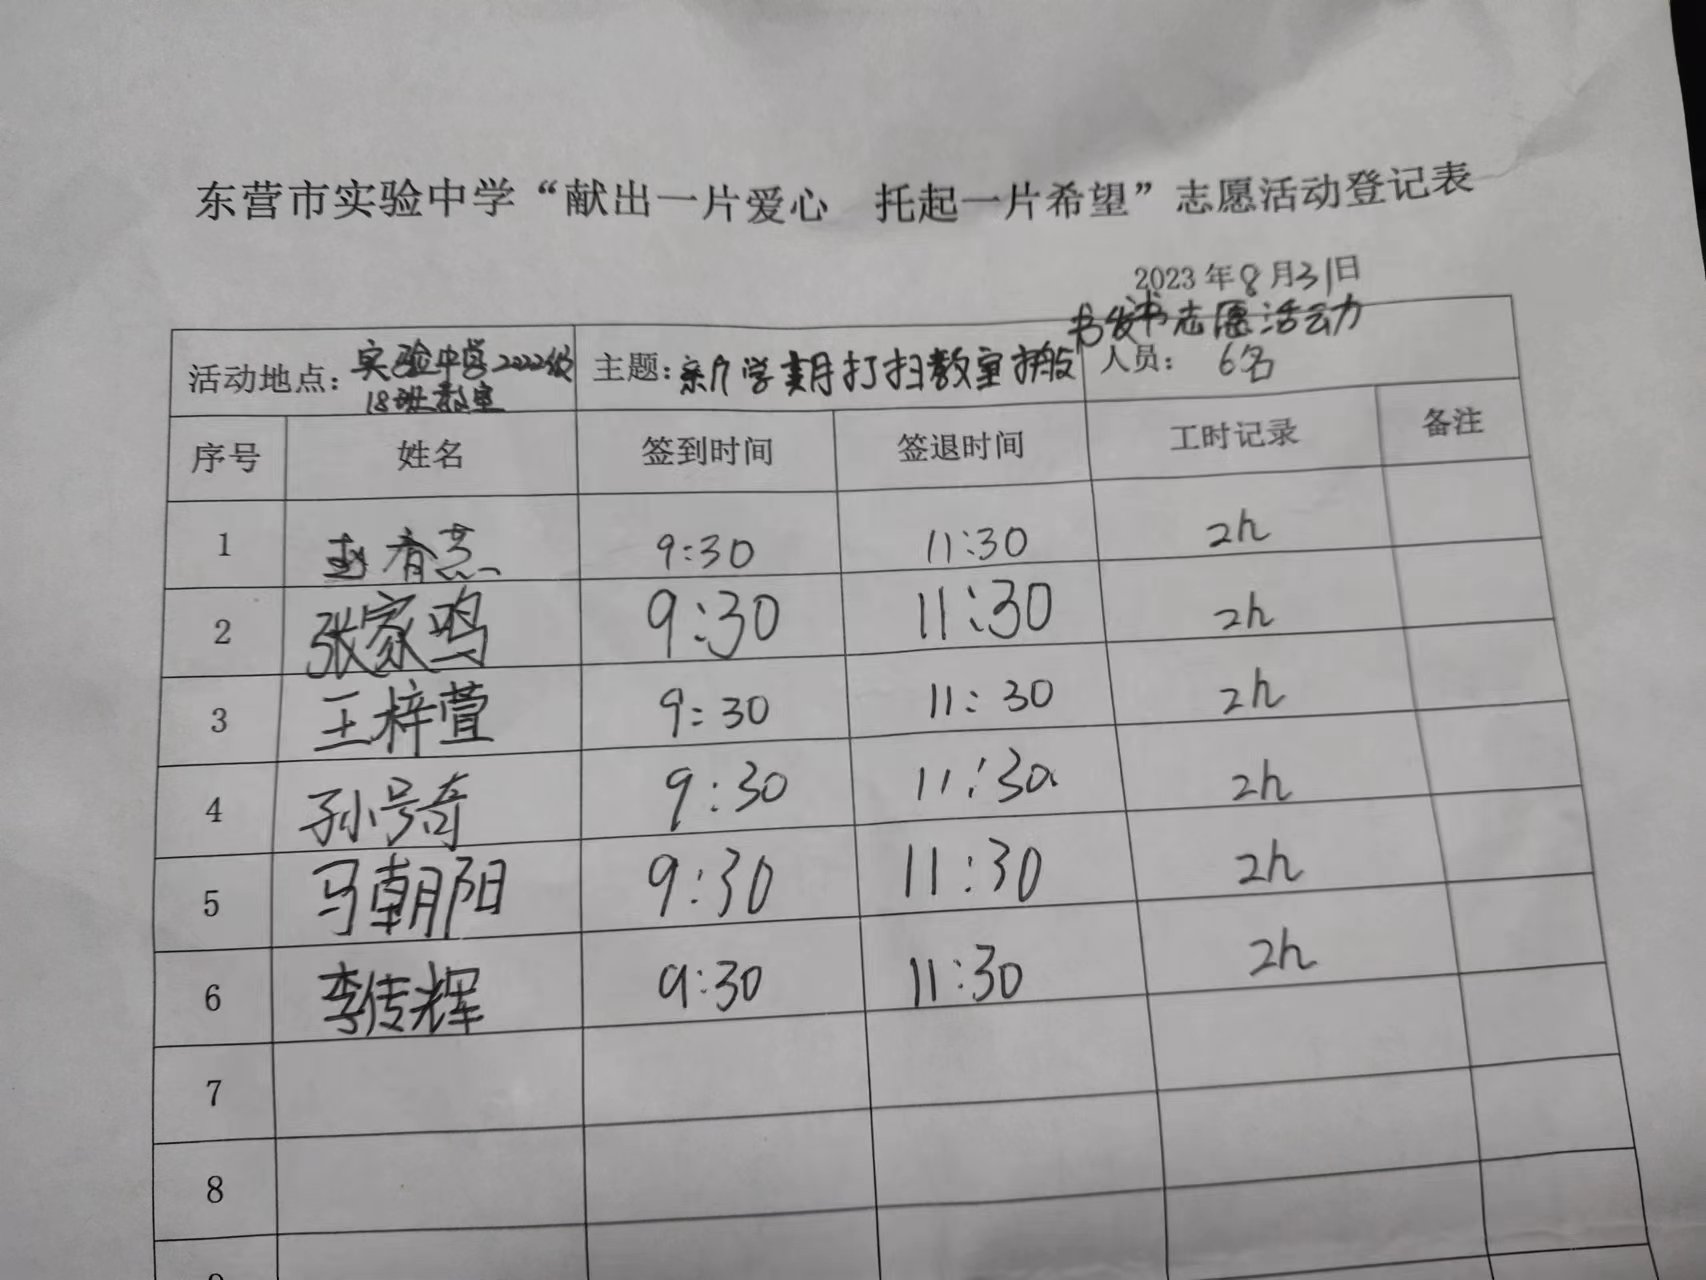 东营市实验中学“献出一片爱心 托起一片希望”志愿活动登记表
2023年8月31日
活动地点：实验中学2022级
18班教室
主题：新学期打扫教室搬
书发书志愿活动
人员： 6名
序号 姓名 签到时间 签退时间 工时记录 备注
1 赵春燕 9:30 11:30 2h
2 张家鸣 9:30 11:30 2h
3 王梓萱 9:30 11:30 2h
4 孙号奇 9:30 11:30 2h
5 马朝阳 9:30 11:30 2h
6 李传辉 9:30 11:30 2h
7
8